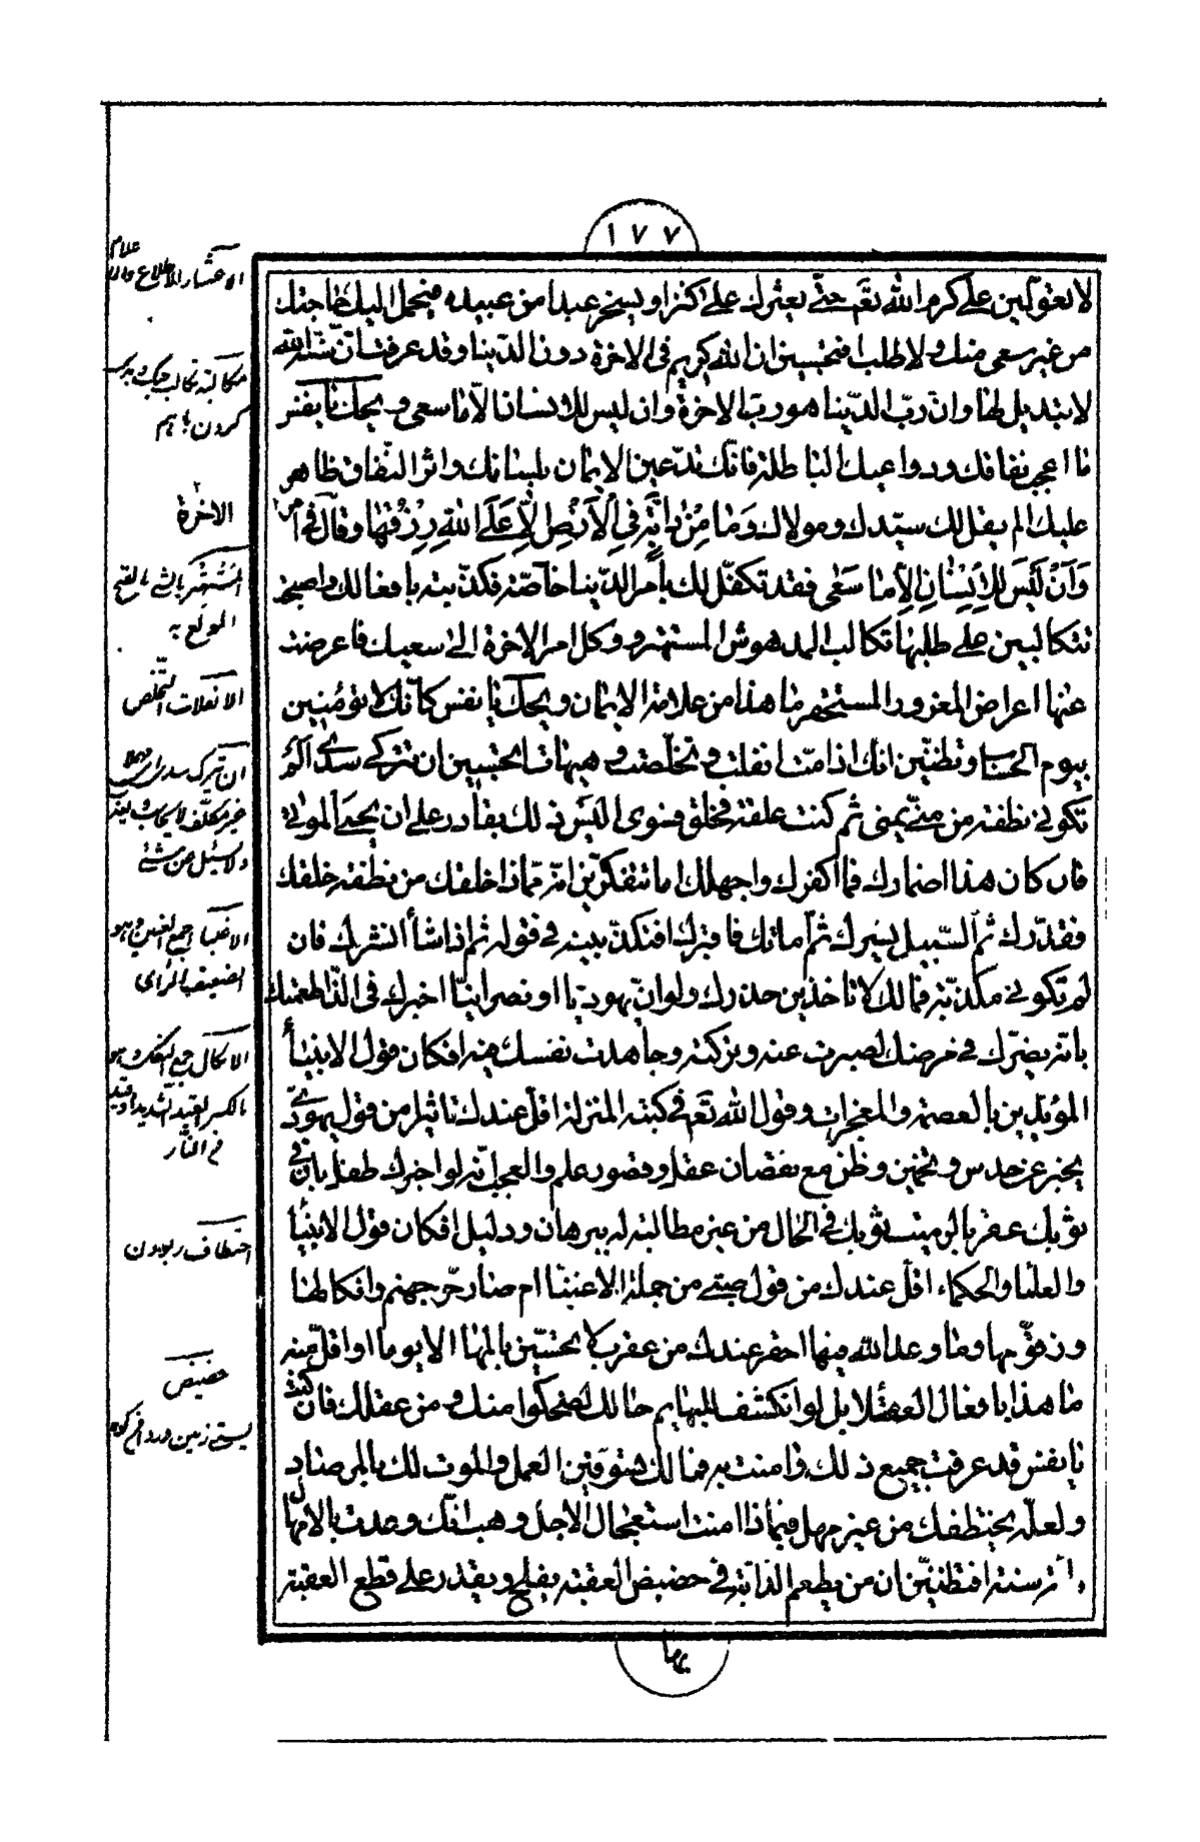 ١٧٧
لا تعولين على كرم الله تعم حتى يعثرك على كنز او يسخر عبدا من عبيده فيحمل اليك حاجتك
من غير سعى منك ولا طلب افتحسبين ان الله كريم فى الاخرة دون الدينا وقد عرفت ان سنة الله
لا تبديل لها وان رب الدينا هو رب الاخرة وان ليس للانسان الا ما سعى ويحك يا نفس
ما اعجب نفاقك ودواعيك الباطلة فانك تدعين الايمان بلسانك واثر النفاق ظاهر
عليك الم يقل لك سيدك ومولاك وَمَا مِنْ دابَّةٍ فِي الْاَرْضِ اِلّا عَلَى اللهِ رِزْقُهٰا وقال فى امر
الاخرة
وَاَنْ لَيْسَ لِلْاِنْسٰانِ اِلّا مٰا سَعٰى فقد تكفل لك بامر الدينا خاصة فكذبته بافعالك واصبحت
تتكالبين على طلبها تكالب المدهوش المستهتر ووكل امر الاخرة الى سعيك فاعرضت
عنها اعراض المغرور المستحقر ما هذا من علامة الايمان ويحك يا نفس كانك لا تؤمنين
بيوم الحساب وتظنين انك اذا مت انفلت وتخلصت وهيهات اتحسبين ان تتركى سدى الم
تكونى نطفة من منى يمنى ثم كنت علقة فخلق فسوى اليس ذلك بقادر على ان يحيى الموتى
فان كان هذا اضمارك فما اكفرك واجهلك اما تتفكرين انه مماذا خلقك من نطفة خلقك
فقدرك ثم السبيل يسرك ثم اماتك فاقبرك افتكذبينه فى قوله ثم اذا شاء انشرك فان
لم تكونى مكذبة فمالك لا تاخذين حذرك ولو ان يهوديا او نصرانيا اخبرك فى الذ اطعمتك
بانه يضرك فى مرضك لصبرت عنه وتركته وجاهدت نفسك فيه افكان قول الانبياء
المؤيدين بالعصمة والمعجزات وقول الله تعم فى كتبه المنزلة اقل عندك تاثيرا من قول يهودى
يخبر عن حدس وتخمين وظن مع نقصان عقل وقصور علم والعجب انه لو اخبرك طفل بان فى
ثوبك عقربا لرميت ثوبك فى الحال من غير مطالبة له ببرهان ودليل افكان قول الانبيا
والعلما والحكماء اقل عندك من قول صبى من جملة الاغبيا ام صار حر جهنم وانكالها
وزقومها وما وعد الله فيها احقر عندك من عقرب لا تحسين بالمها الا يوما او اقل منه
ما هذا بافعال العقلا بل لو انكشف للبهايم حالك لضحكوا منك ومن عقلك فان كنت
يا نفس قد عرفت جميع ذلك وامنت به فمالك تسوفين العمل والموت لك بالمرصاد
ولعله يختطفك من غير مهل فبماذا امنت استعجال الاجل وهب انك وعدت بالامهال
سنة افتظنين ان من يطعم الدابة فى حضيض العقبة يفلح ويقدر على قطع العقبة
بها
الاعثار الاطلاع والاعلام
كردن باهم
المستهتر بالشئ بالفتح
المولع به
الانفلات التخلص
ولا يسئل عن شئ
الضعيف الراى
فى النار
اختطاف ربودن
حضيض